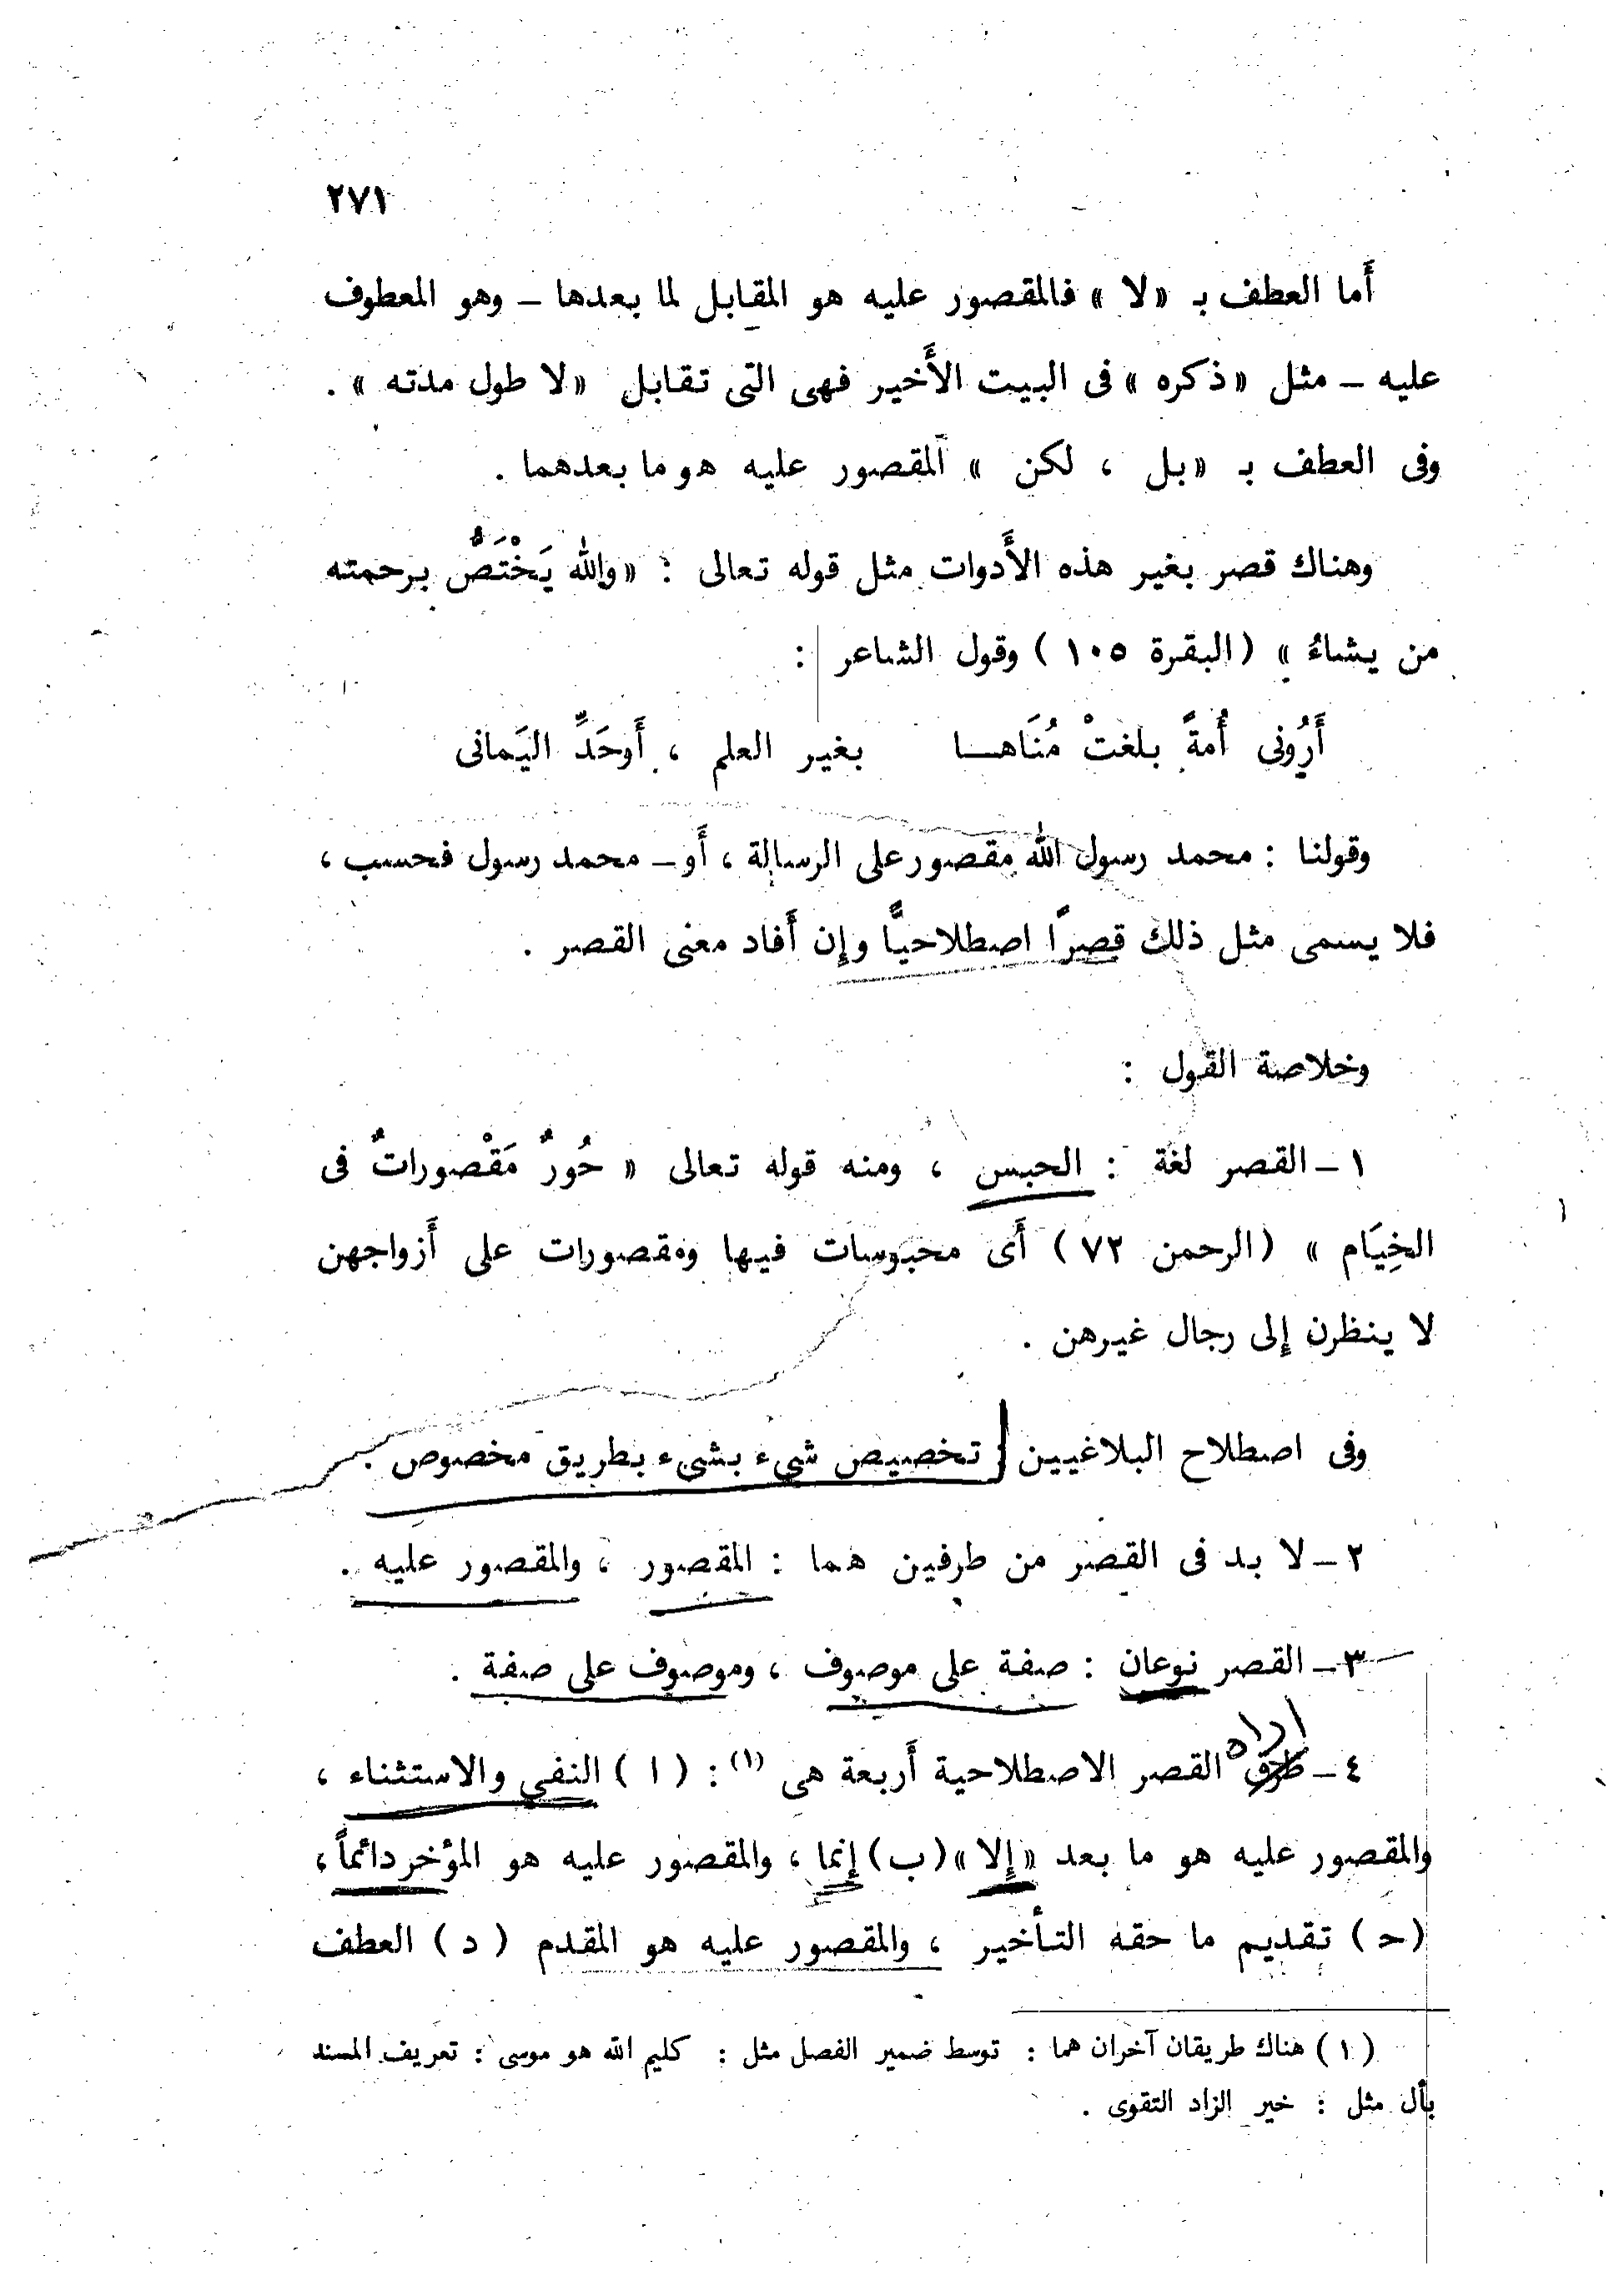 ٢٧١
أَما العطف بـ «لا» فالمقصور عليه هو المقابل لما بعدها – وهو المعطوف
عليه – مثل «ذكره» فى البيت الأَخير فهى التى تقابل «لا طول مدته» .
وفى العطف بـ «بل ، لكن» المقصور عليه هو ما بعدهما .
وهناك قصر بغير هذه الأَدوات مثل قوله تعالى : «والله يَخْتَصُّ برحمته
من يشاءُ» (البقرة ١٠٥) وقول الشاعر :
أَرُونى أُمةً بلغتْ مُنَاهـا بغير العلم ، أَوحَدِّ اليَمانى
وقولنا : محمد رسول الله مقصور على الرسالة ، أَو – محمد رسول فحسب ،
فلا يسمى مثل ذلك قصرًا اصطلاحيًّا وإِن أَفاد معنى القصر .
وخلاصة القول :
١ – القصر لغة : الحبس ، ومنه قوله تعالى « حُورٌ مَقْصوراتٌ فى
الخِيَام » (الرحمن ٧٢) أَى محبوسات فيها ومقصورات على أَزواجهن
لا ينظرن إِلى رجال غيرهن .
وفى اصطلاح البلاغيين : تخصيص شىء بشىء بطريق مخصوص .
٢ – لا بد فى القصر من طرفين هما : المقصور ، والمقصور عليه .
٣ – القصر نوعان : صفة على موصوف ، وموصوف على صفة .
٤ – طرق القصر الاصطلاحية أَربعة هى (١) : ( ا ) النفى والاستثناء ،
والمقصور عليه هو ما بعد «إِلا» (ب) إِنما ، والمقصور عليه هو المؤخر دائماً ،
(حـ) تقديم ما حقه التأخير ، والمقصور عليه هو المقدم (د) العطف
(١) هناك طريقان آخران هما : توسط ضمير الفصل مثل : كليم الله هو موسى : تعريف المسند
بأل مثل : خير الزاد التقوى .